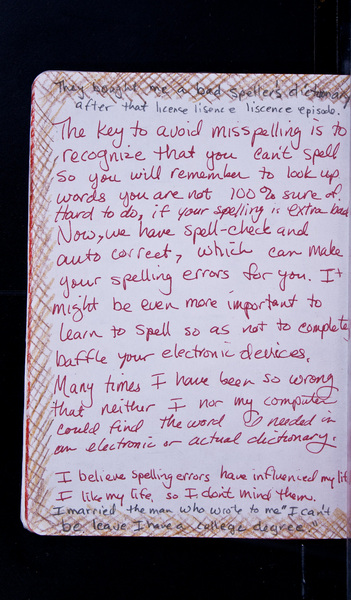 They bought me a bad speller's dictionary
after that license lisence liscence episode.
The key to avoid misspelling is to
recognize that you can't spell
so you will remember to look up
words you are not 100% sure of.
Hard to do, if your spelling is extra bad.
Now, we have spell-check and
auto correct, which can make
your spelling errors for you. It
might be even more important to
learn to spell so as not to completely
baffle your electronic devices.
Many times I have been so wrong
that neither I nor my computer
could find the word I needed in
an electronic or actual dictionary.
I believe spelling errors have influenced my life
I like my life, so I don't mind them.
I married the man who wrote to me "I can't
be leave I have a college degree"